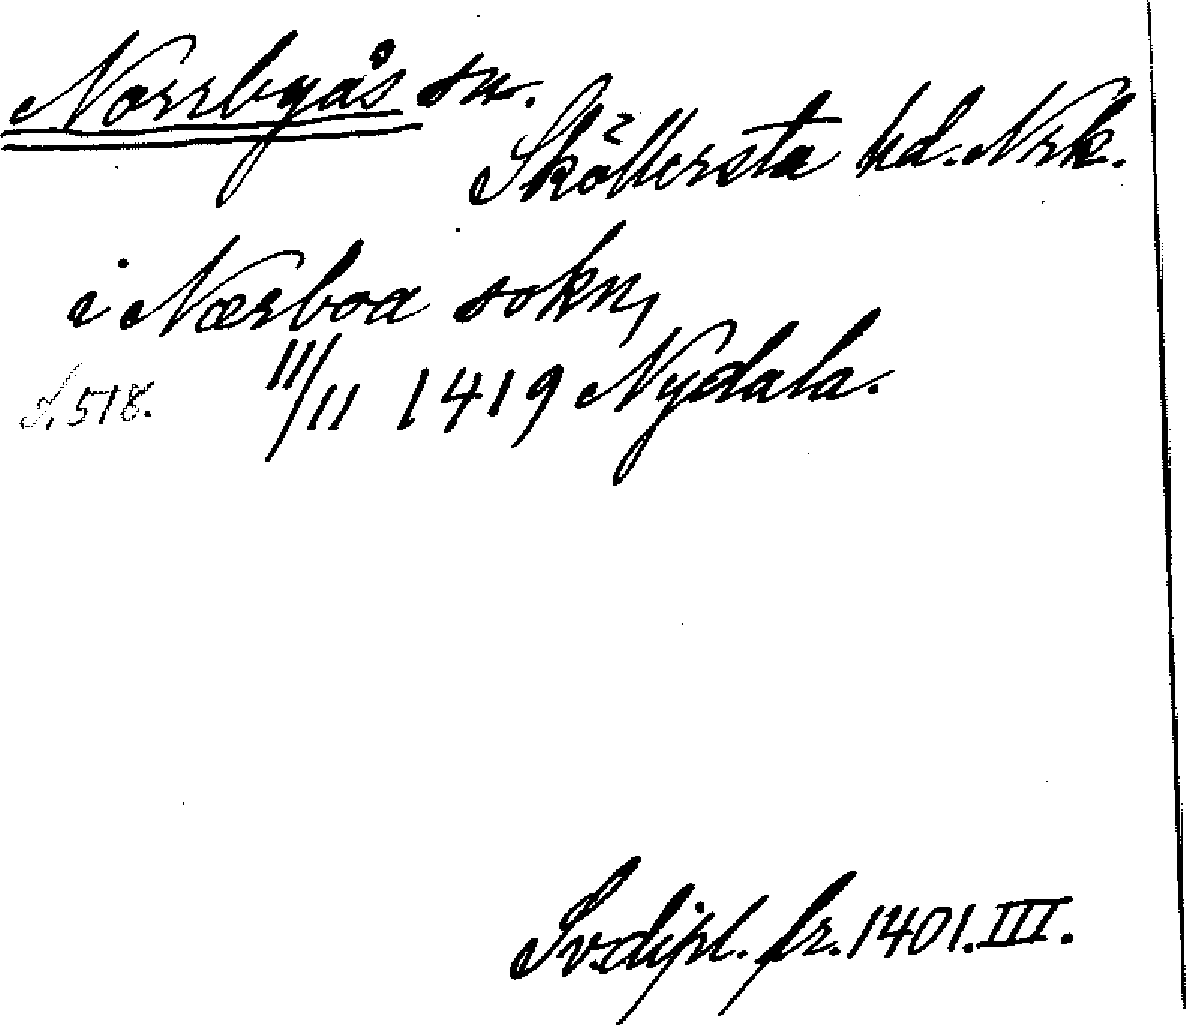 Norrbyås sn.
Sköllersta hd. Nrk.
i Nærboa sokn,
11/11 1419 Nydala.
S. 518.
Sv. dipl. fr. 1401. III.